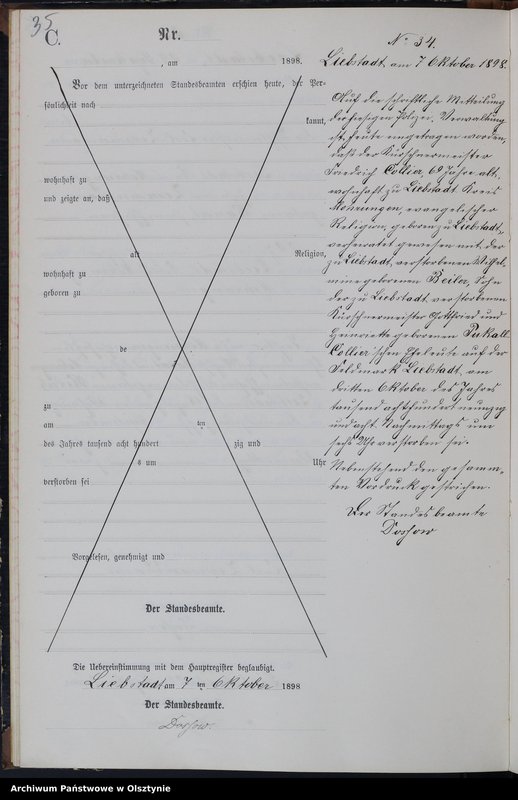 35
C.
Nr.
, am 1898.
Vor dem unterzeichneten Standesbeamten erschien heute, der Per-
sönlichkeit nach
kannt,
wohnhaft zu
und zeigte an, daß
alt Religion,
wohnhaft zu
geboren zu
de
zu
am ten
des Jahres tausend acht hundert zig und
s um Uhr
verstorben sei
Vorgelesen, genehmigt und
Der Standesbeamte.
Die Uebereinstimmung mit dem Hauptregister beglaubigt.
Liebstadt, am 7 ten Oktober 1898
Der Standesbeamte.
No 34.
Liebstadt, am 7 Oktober 1898.
Auf die schriftliche Mitteilung
der hiesigen Polizei-Verwaltung
ist heute eingetragen worden,
daß der Kürschnermeister
Friedrich Collier, 69 Jahre alt,
wohnhaft zu Liebstadt Kreis
Mohrungen, evangelischer
Religion, geboren zu Liebstadt,
verheiratet gewesen mit der
zu Liebstadt verstorbenen
geborenen Beiler, Sohn
der zu Liebstadt verstorbenen
Kürschnermeister Gottfried und
Henriette geborenen Pukall
Collier'schen Eheleute auf der
Feldmark Liebstadt, am
dritten Oktober des Jahres
tausend achthundert neunzig
und acht Nachmittags um
sechs Uhr verstorben sei.
Nebenstehend den gesamm-
ten Vordruck gestrichen.
Der Standesbeamte
Archiwum Państwowe w Olsztynie